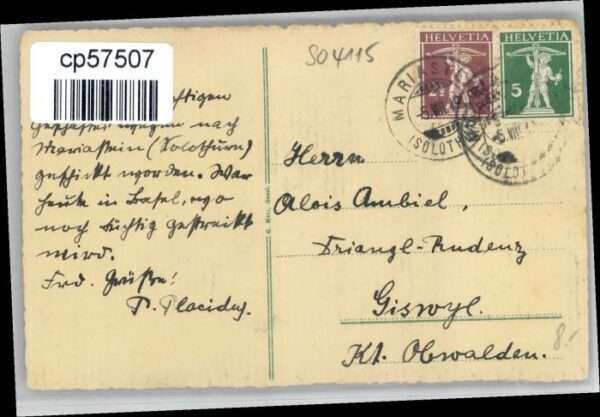 cp57507
SO 4115
HELVETIA
HELVETIA
5
MARIASTEIN
(SOLOTH
(SOLOT
htigen
Geschäften wegen nach
Mariastein (Solothurn)
geschickt worden. War
heute in Basel, wo
noch tüchtig gestreikt
wird.
Frd. Grüße!
P. Placidus.
Herrn
Alois Ambiel,
Triangl-Rudenz
Giswyl.
Kt. Obwalden.
8.-